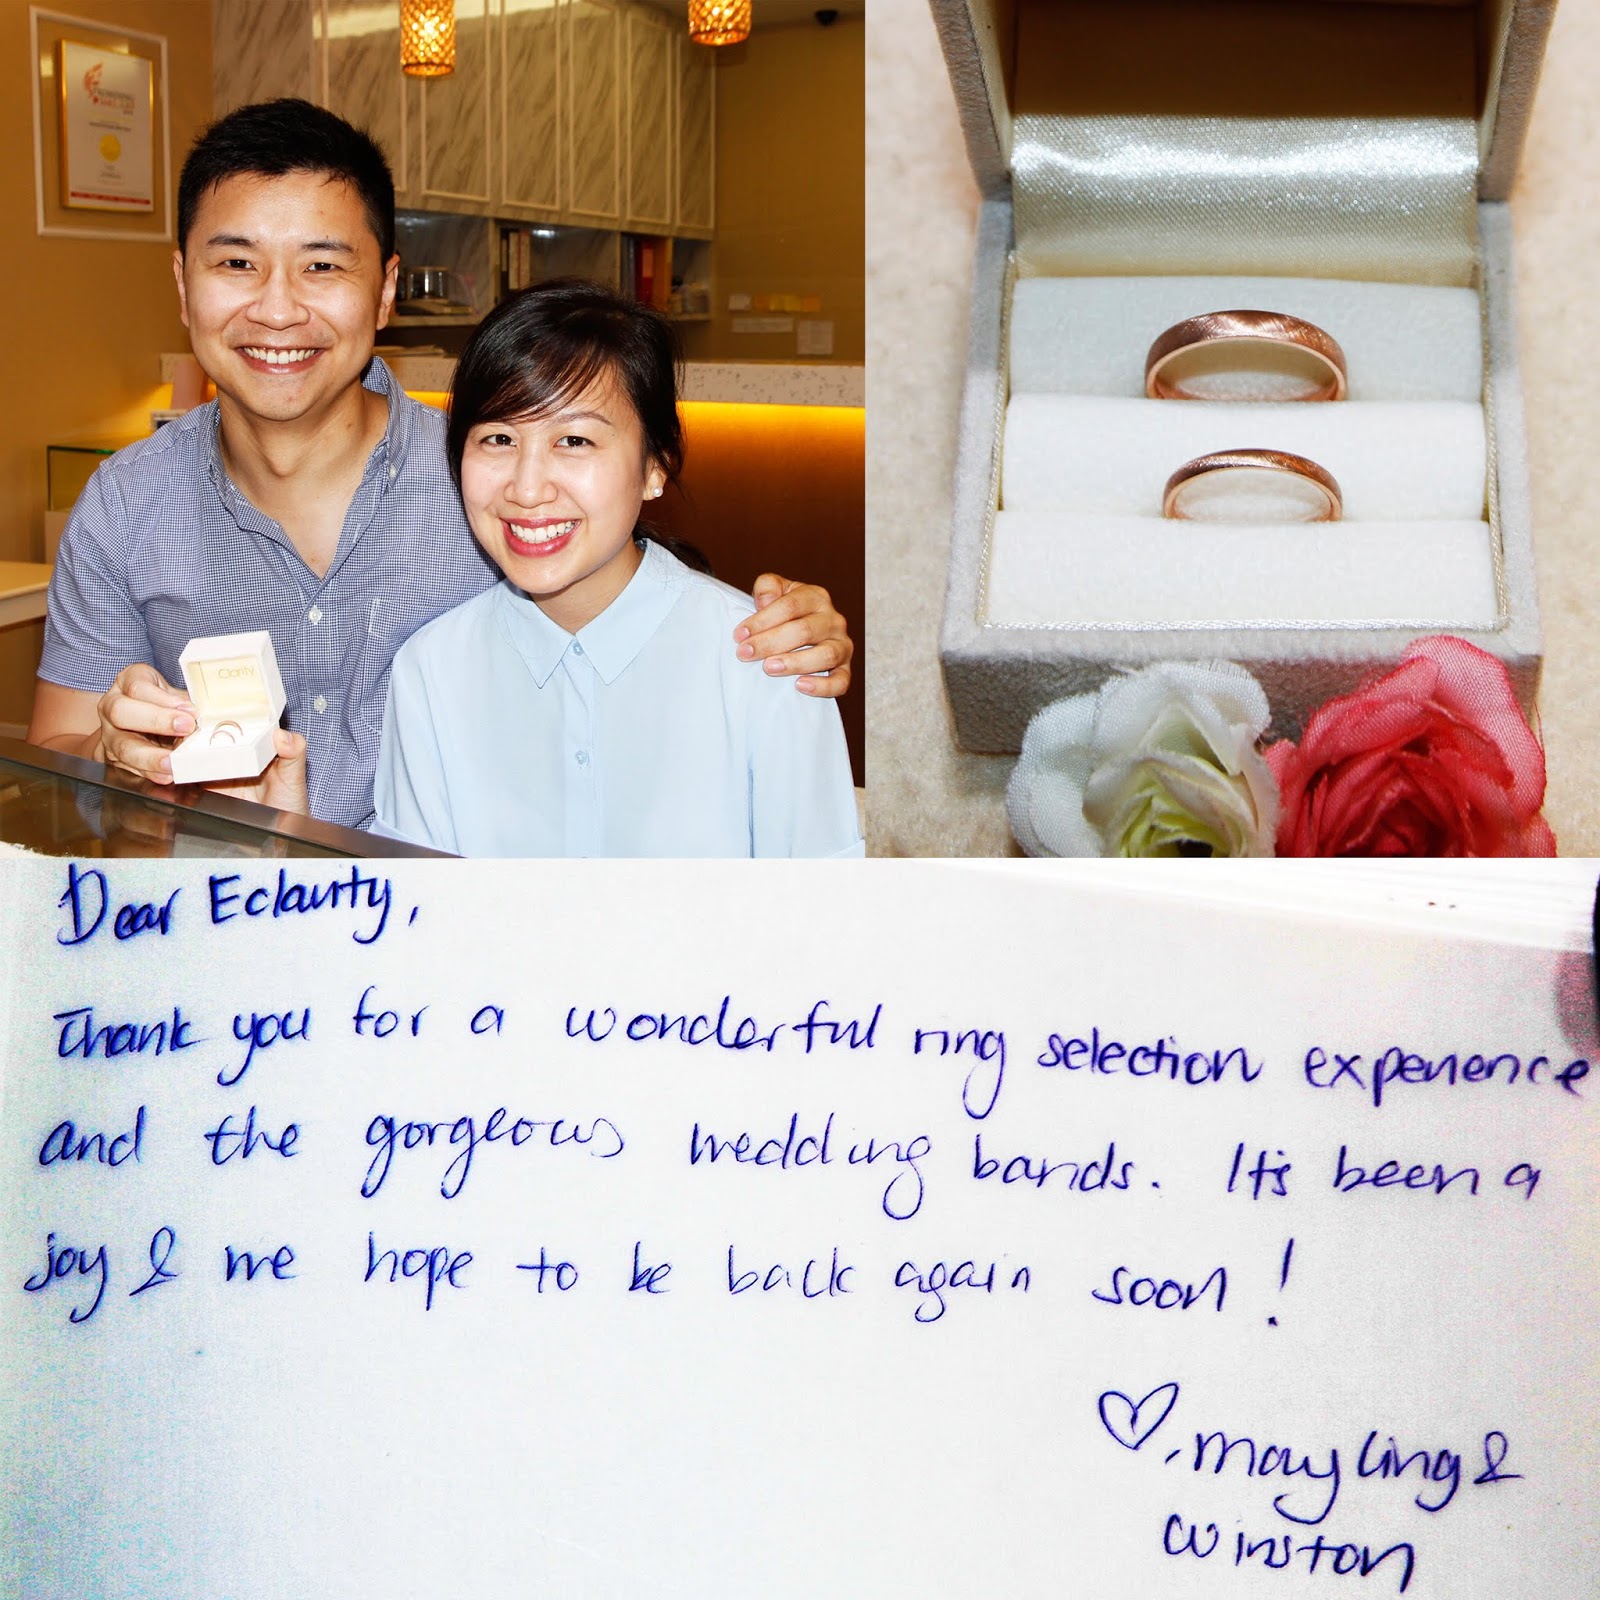 Clarity
Dear Eclarity,
Thank you for a wonderful ring selection experience
and the gorgeous wedding bands. It's been a
joy & we hope to be back again soon!
♡, Mayling &
Winston